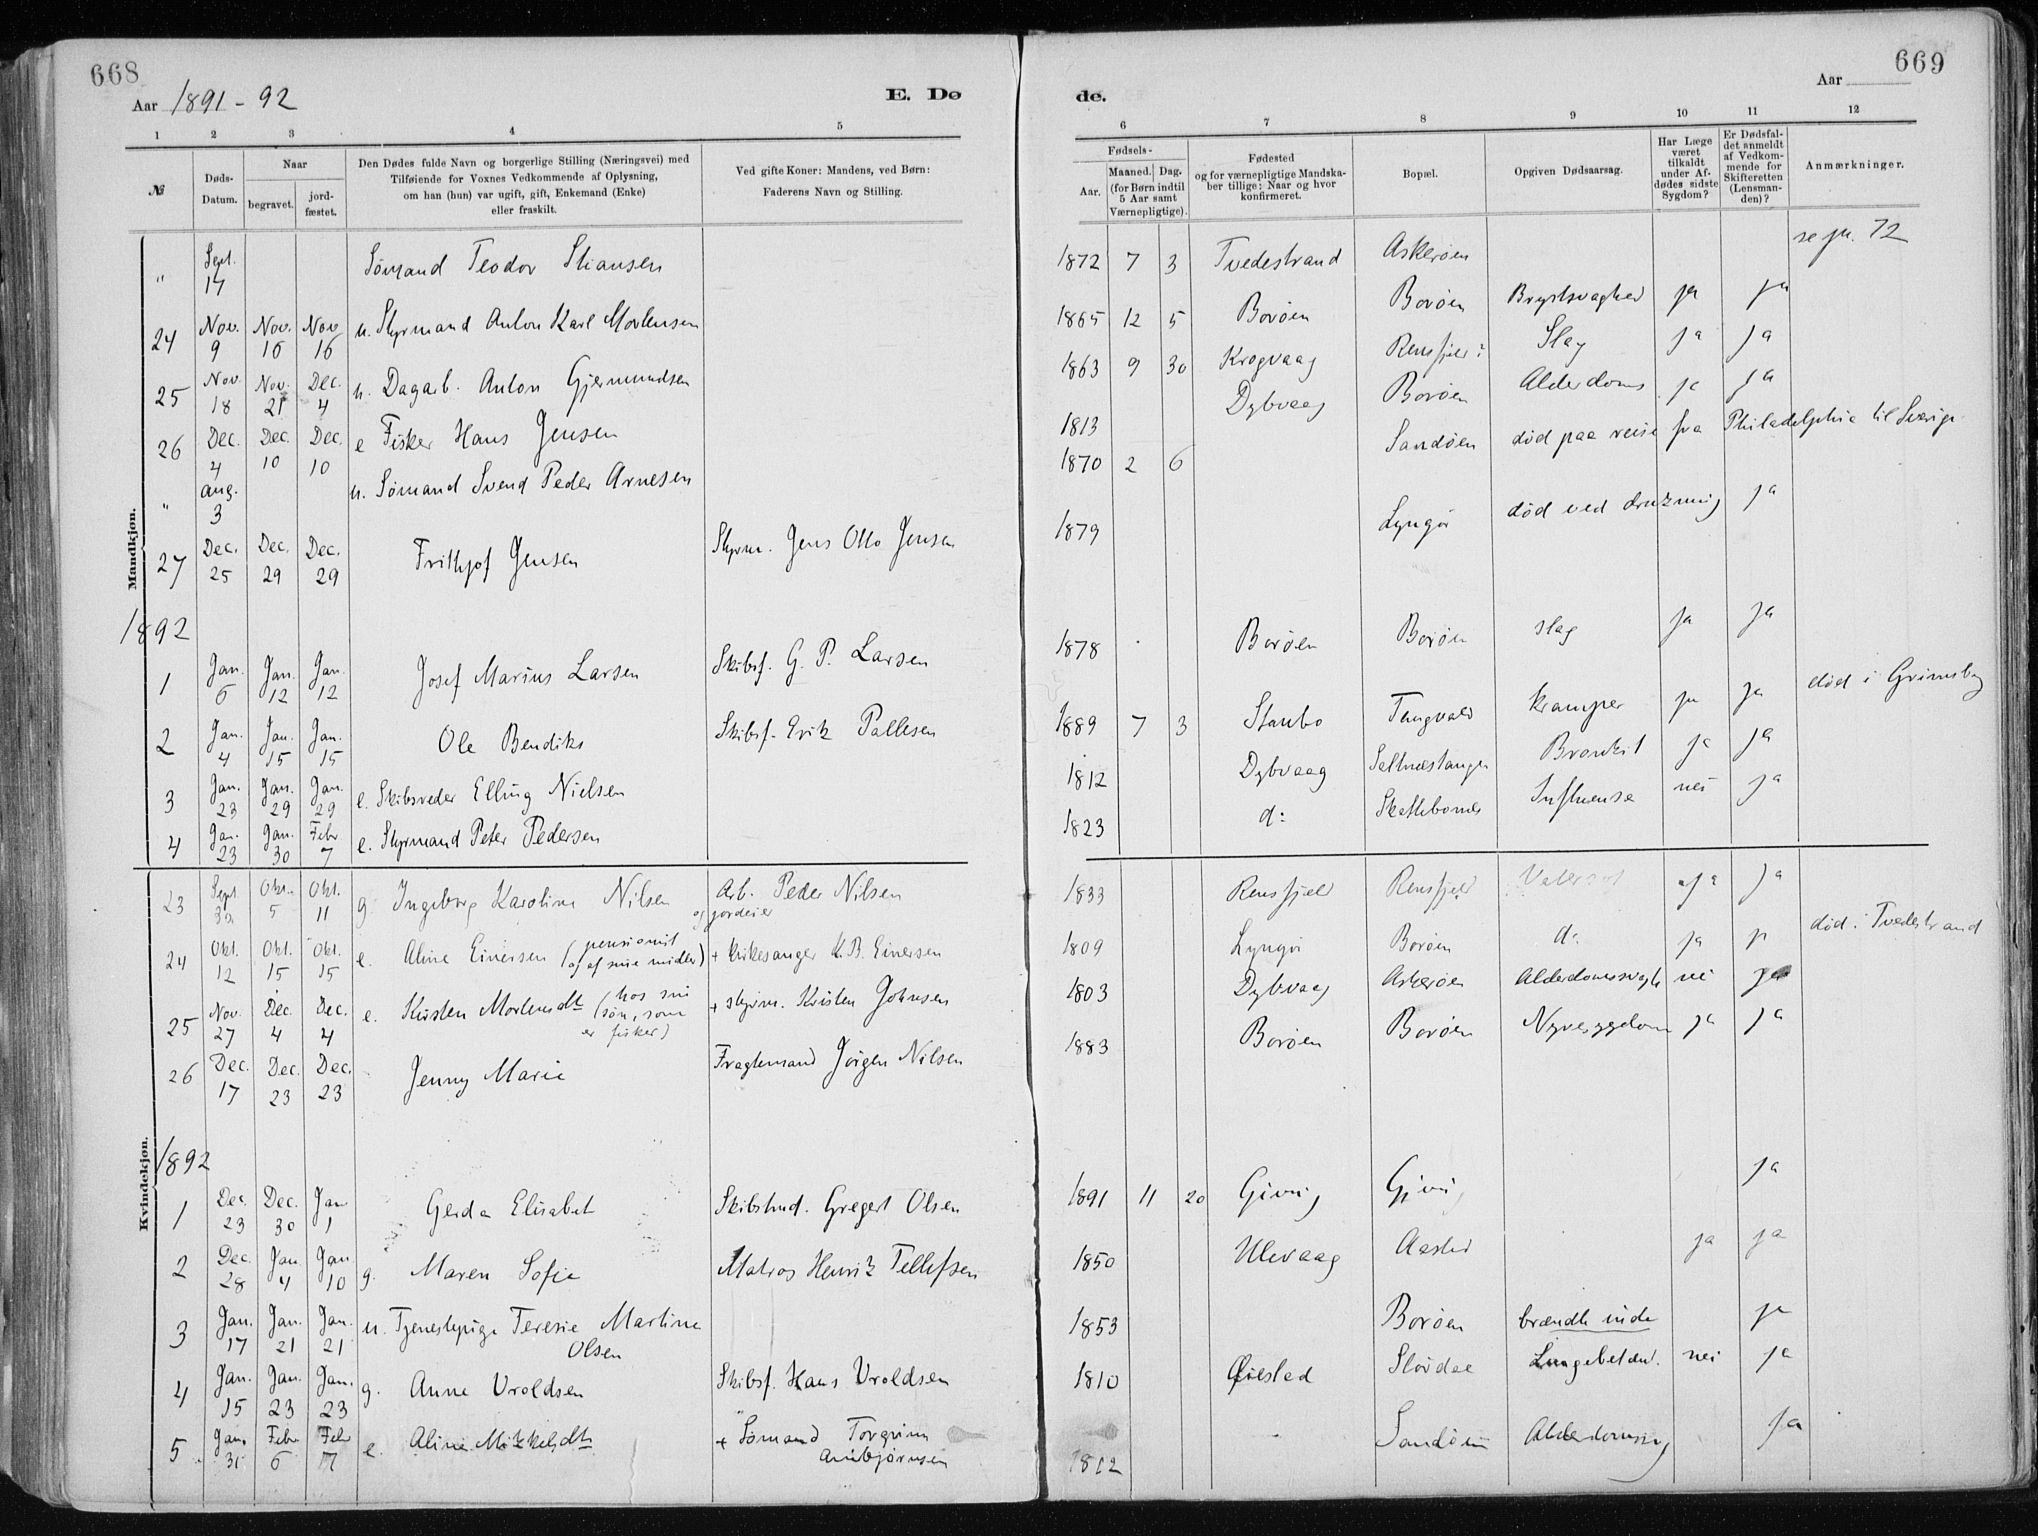 668
Aar 1891-92
E. Dø
1 2 3 4 5
№
Døds-Datum.
Naar
begravet.
jordfæstet.
Den Dødes fulde Navn og borgerlige Stilling (Næringsvei) med
Tilføiende for Voxnes Vedkommende af Oplysning,
om han (hun) var ugift, gift, Enkemand (Enke)
eller fraskilt.
Ved gifte Koner: Mandens, ved Børn:
Faderens Navn og Stilling.
Mandkjøn.
" Sept. 14 Sømand Teodor Stiansen
24 Nov. 9 Nov. 16 Nov 16 u. Styrmand Anton Karl Mortensen
25 Nov. 18 Nov. 21 Dec. 4 u. Dagarb. Anton Gjermundsen
26 Dec. 4 Dec. 10 Dec. 10 e Fisker Hans Jensen
" Aug. 3 u. Sømand Svend Peder Arnesen
27 Dec. 25 Dec. 29 Dec. 29 Frithjof Jensen Styrm. Jens Otto Jensen
1892
1 Jan. 6 Jan. 12 Jan. 12 Josef Marius Larsen Skibsf. G. P. Larsen
2 Jan. 4 Jan. 15 Jan. 15 Ole Bendiks Skibsf. Erik Pallesen
3 Jan. 23 Jan. 29 Jan. 29 e. Skibsreder Elling Nielsen
4 Jan. 23 Jan. 30 Febr 7 e. Styrmand Peter Pedersen
Kvindekjøn.
23 Sept. Okt. 5 Okt. 11 g. Ingeborg Karoline Nilsen Arb. og jordeier Peder Nilsen
24 Okt. 12 Okt. 15 Okt. 15 e. Aline Einersen (pensionist og af sine midler) + kirkesanger K.B. Einersen
25 Nov. 27 Dec. 4 Dec. 4 e. Kirsten Mortensdt (hos sin søn, som er fisker) + styrm. Kristen Johnsen
26 Dec. 17 Dec. 23 Dec. 23 Jenny Marie Fragtemand Jørgen Nilsen
1892
1 Dec. 23 Dec. 30 Jan 1 Gerda Elisabet Skibstmd. Gregert Olsen
2 Dec. 28 Jan 4 Jan. 10 g. Maren Sofie Matros Henrik Tellefsen
3 Jan. 17 Jan. 21 Jan. 21 u. Tjenestepige Teresie Martine Olsen
4 Jan. 15 Jan. 23 Jan. 23 g. Anne Uroldsen Skibsf. Hans Uroldsen
5 Jan. 31 Febr 6 Febr 7 e. Aline Mikkelsdt + Sømand Torgrim Arnbjørnsen
669
Aar
de.
6 7 8 9 10 11 12
Fødsels-
Aar.
Maaned. Dag.
(for Børn indtil
5 Aar samt
Værnepligtige).
Fødested
og for værnepligtige Mandskaber tillige: Naar og hvor
konfirmeret.
Bopæl.
Opgiven Dødsaarsag.
Har Læge været tilkaldt under Afdødes sidste Sygdom?
Er Dødsfaldet anmeldt af Vedkommende for Skifteretten (Lensmanden)?
Anmærkninger.
1872 7 3 Tvedestrand Askerøen se pr. 72
1865 12 5 Borøen Borøen Brystsvaghed ja ja
1863 9 30 Krogvaag Rensfjeld Slag ja ja
1813 Dybvaag Borøen Alderdoms ja ja
1870 2 6 Sandøen død paa reise fra Philadelphia til Sverige
1879 Lyngør død ved drukning ja
1878 Borøen Borøen slag ja ja
1889 7 3 Staubo Tangvald kramper ja ja død i Grimsby
1812 Dybvaag Saltnæstangen Bronkit ja ja
1823 d: Skattebomes Influense nei ja
1833 Rensfjeld Rensfjeld ja ja
1809 Lyngør Borøen d: ja ja død i Tvedestrand
1803 Dybvaag Askerøen Alderdomssvagh nei ja
1883 Borøen Borøen Nyresygdom ja ja
1891 11 20 Gjving Gjving ja
1850 Ulevaag Aasted ja ja
1853 Borøen brændte inde ja
1810 Øiestad Slovdae Lungebetænd. nei ja
1812 Sandøen Alderdomssv ja